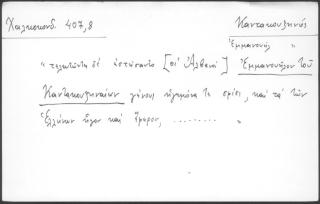 Χαλκοκονδ. 407,8
Καντακουζηνός
Ἐμμανουὴλ "
" τελευτῶντα δὲ ἐστήσαντο [οἱ Ἀλβανοί] Ἐμμανουῆλον τοῦ
Καντακουζηναίων γένους ἡγεμόνα τε σφίσι, καὶ τὰ τῶν
Ἑλλήνων ἦγον καὶ ἔφερον, ......... "